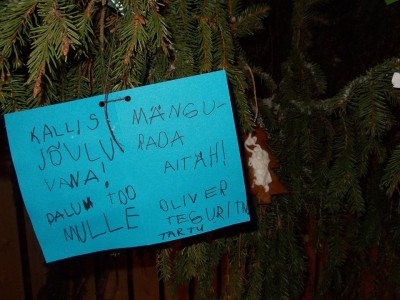 KALLIS
JÕULU
VANA!
PALUN TOO
MULLE
MÄNGU-
RADA
AITÄH!
OLIVER
TEGURI TN
TARTU